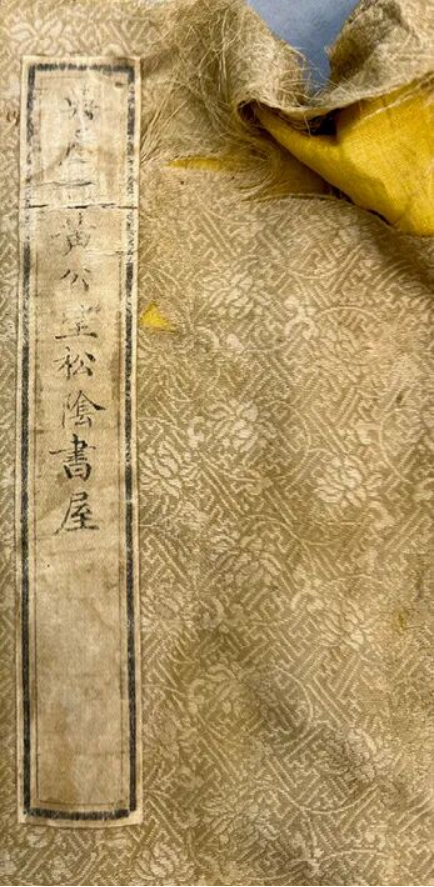 黃公望松陰書屋